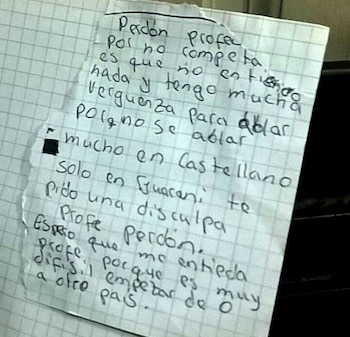 Perdón profe
por no competa
es que no entiendo
nada y tengo mucha
verguenza para ablar
porqno se ablar
mucho en Castellano
solo en Guarani te
pido una disculpa
Profe perdón.
Espso que me entieda
profe porque es muy
difisil empezar de 0
a otro pais.